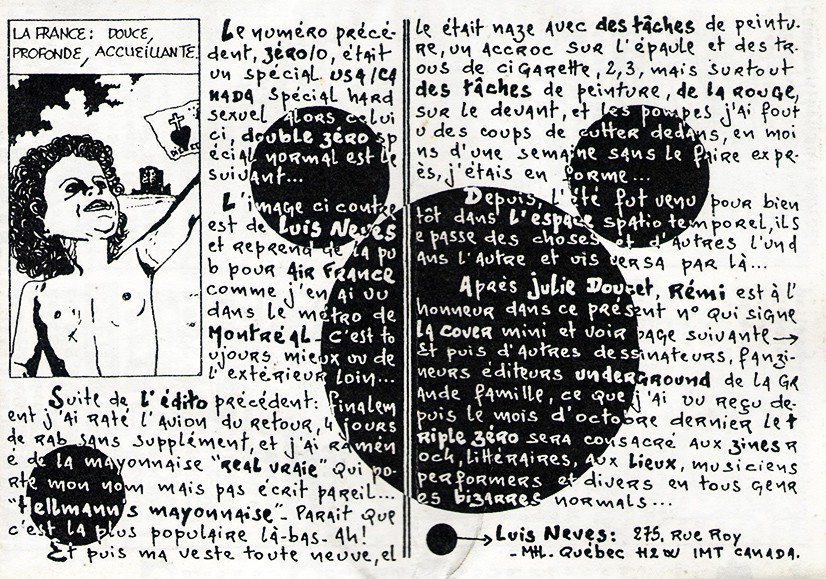 LA FRANCE: DOUCE,
PROFONDE, ACCUEILLANTE.
Le numéro précé-
dent, zéro/0, était
un spécial USA/CA
NADA spécial hard
sexuel alors celui
ci, double zéro sp
écial normal est le
suivant...
L'image ci contre
est de Luis Neves
et reprend de la pu
b pour AIR FRANCE
comme j'en ai vu
dans le métro de
Montréal. C'est to
ujours mieux vu de
l'extérieur loin...
Suite de l'édito précédent: finalem
ent j'ai raté l'avion du retour, 4 jours
de rab sans supplément, et j'ai ramén
é de la mayonnaise "real vraie" qui po-
rte mon nom mais pas écrit pareil...
"Hellmann's mayonnaise". Parait que
c'est la plus populaire là-bas. Ah!
Et puis ma veste toute neuve, el
le était naze avec des tâches de peintu-
re, un accroc sur l'épaule et des tr-
ous de cigarette, 2, 3, mais surtout
des tâches de peinture, de la rouge,
sur le devant, et les pompes j'ai fout
u des coups de cutter dedans, en moi
ns d'une semaine sans le faire expr-
ès, j'étais en forme...
Depuis, l'été fut venu pour bien
tôt dans l'espace spatio temporel, ils
e passe des choses et d'autres l'und
ans l'autre et vis versa par là...
Après Julie Doucet, Rémi est à l'
honneur dans ce présent n° qui signe
la cover mini et voir page suivante →
Et puis d'autres dessinateurs, fanzi-
neurs éditeurs underground de la gr
ande famille, ce que j'ai vu reçu de-
puis le mois d'octobre dernier le t
riple zéro sera consacré aux zines r
ock, littéraires, aux lieux, musiciens
performers et divers en tous genr
es bizarres normals...
Luis Neves: 275, Rue Roy
- Mtl. Québec H2W 1M7 CANADA.